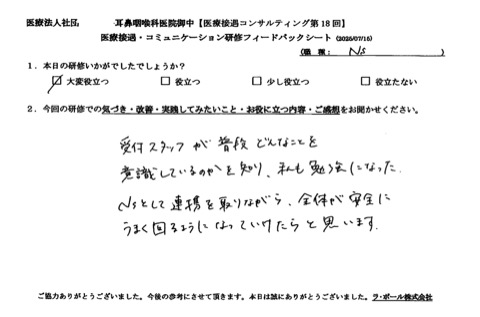 医療法人社団　　　耳鼻咽喉科医院御中【医療接遇コンサルティング第18回】
医療接遇・コミュニケーション研修フィードバックシート (2025/07/15)
(職種： Ns )
1．本日の研修いかがでしたでしょうか？
☑ 大変役立つ　□ 役立つ　□ 少し役立つ　□ 役立たない
2．今回の研修での気づき・改善・実践してみたいこと・お役に立つ内容・ご感想をお聞かせください。
受付スタッフが普段どんなことを
意識しているのかを知り、私も勉強になった.
Nsとして連携を取りながら、全体が安全に
うまく回るようになっていけたらと思います.
ご協力ありがとうございました。今後の参考にさせて頂きます。本日は誠にありがとうございました。ラ・ポール株式会社